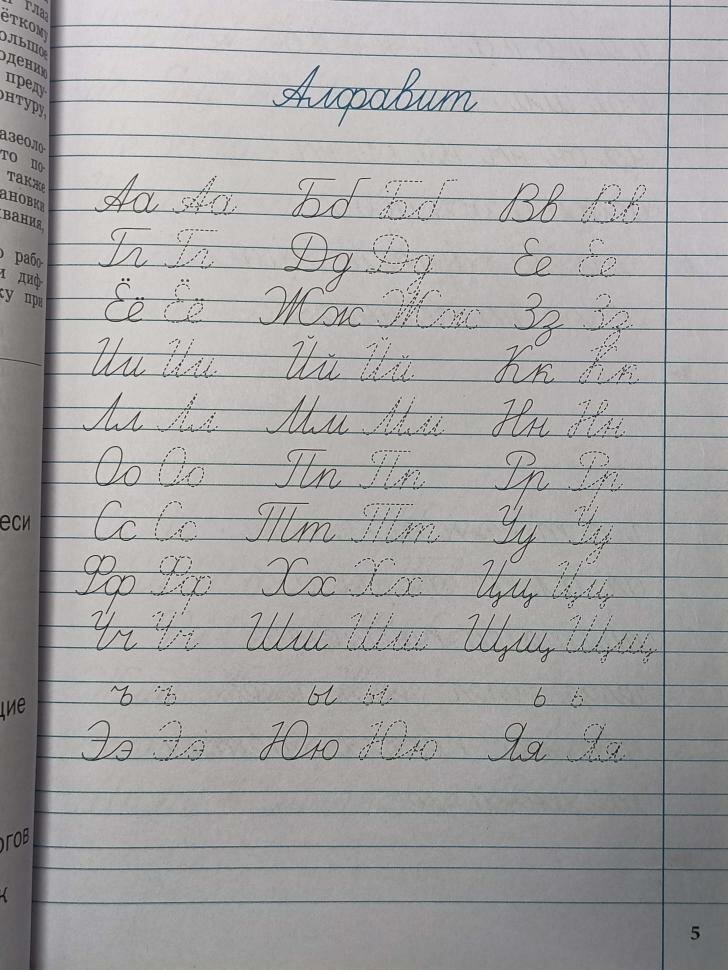 глаз
ольшое
преду-
онтуру,
азеоло-
то по-
также
ановки
рабо-
и диф-
ку при
еси
Алфавит
Аа Аа Бб Бб Вв Вв
Гг Гг Дд Дд Ее Ее
Ёё Ёё Жж Жж Зз Зз
Ии Ии Йй Йй Кк Кк
Лл Лл Мм Мм Нн Нн
Оо Оо Пп Пп Рр Рр
Сс Сс Тт Тт Уу Уу
Фф Фф Хх Хх Цц Цц
Чч Чч Шш Шш Щщ Щщ
ъ ъ ы ы ь ь
Ээ Ээ Юю Юю Яя Яя
5